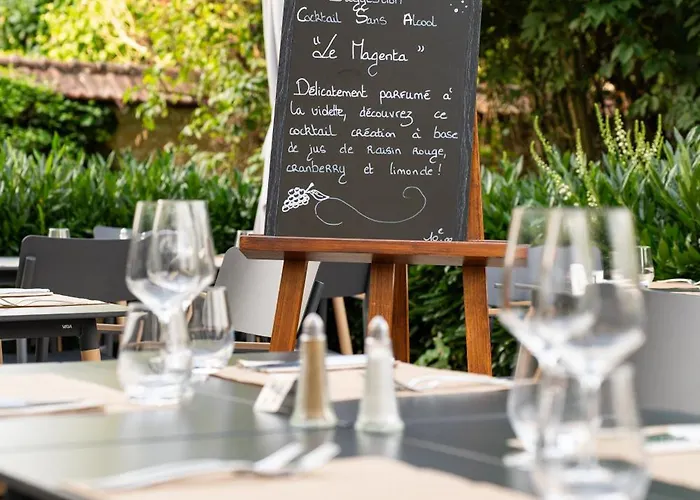 Suggestion
Cocktail Sans Alcool
"Le Magenta"
Délicatement parfumé à
la violette, découvrez ce
cocktail création à base
de jus de Raisin Rouge,
cranberry et limonde !
10€